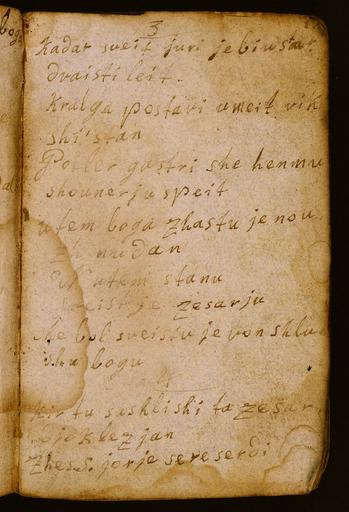 3
Kadar sveit juri je biu star
dvaisti leit.
Kralga postavi v meit vik
shi stan
Potler gastri she henmu
shounerju speit
utem boga zhastu je nou
zh nudan
utem stanu
veist je zesarju
she bol sveistu je von shlu
shu bogu
4
Kir tu sushlishi ta zesar
joklezjan
zhes S. jorje sereserdi